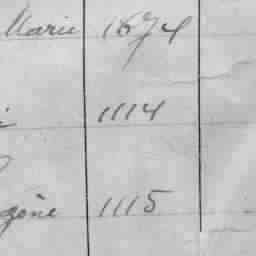 Marie 1674
1114
1115